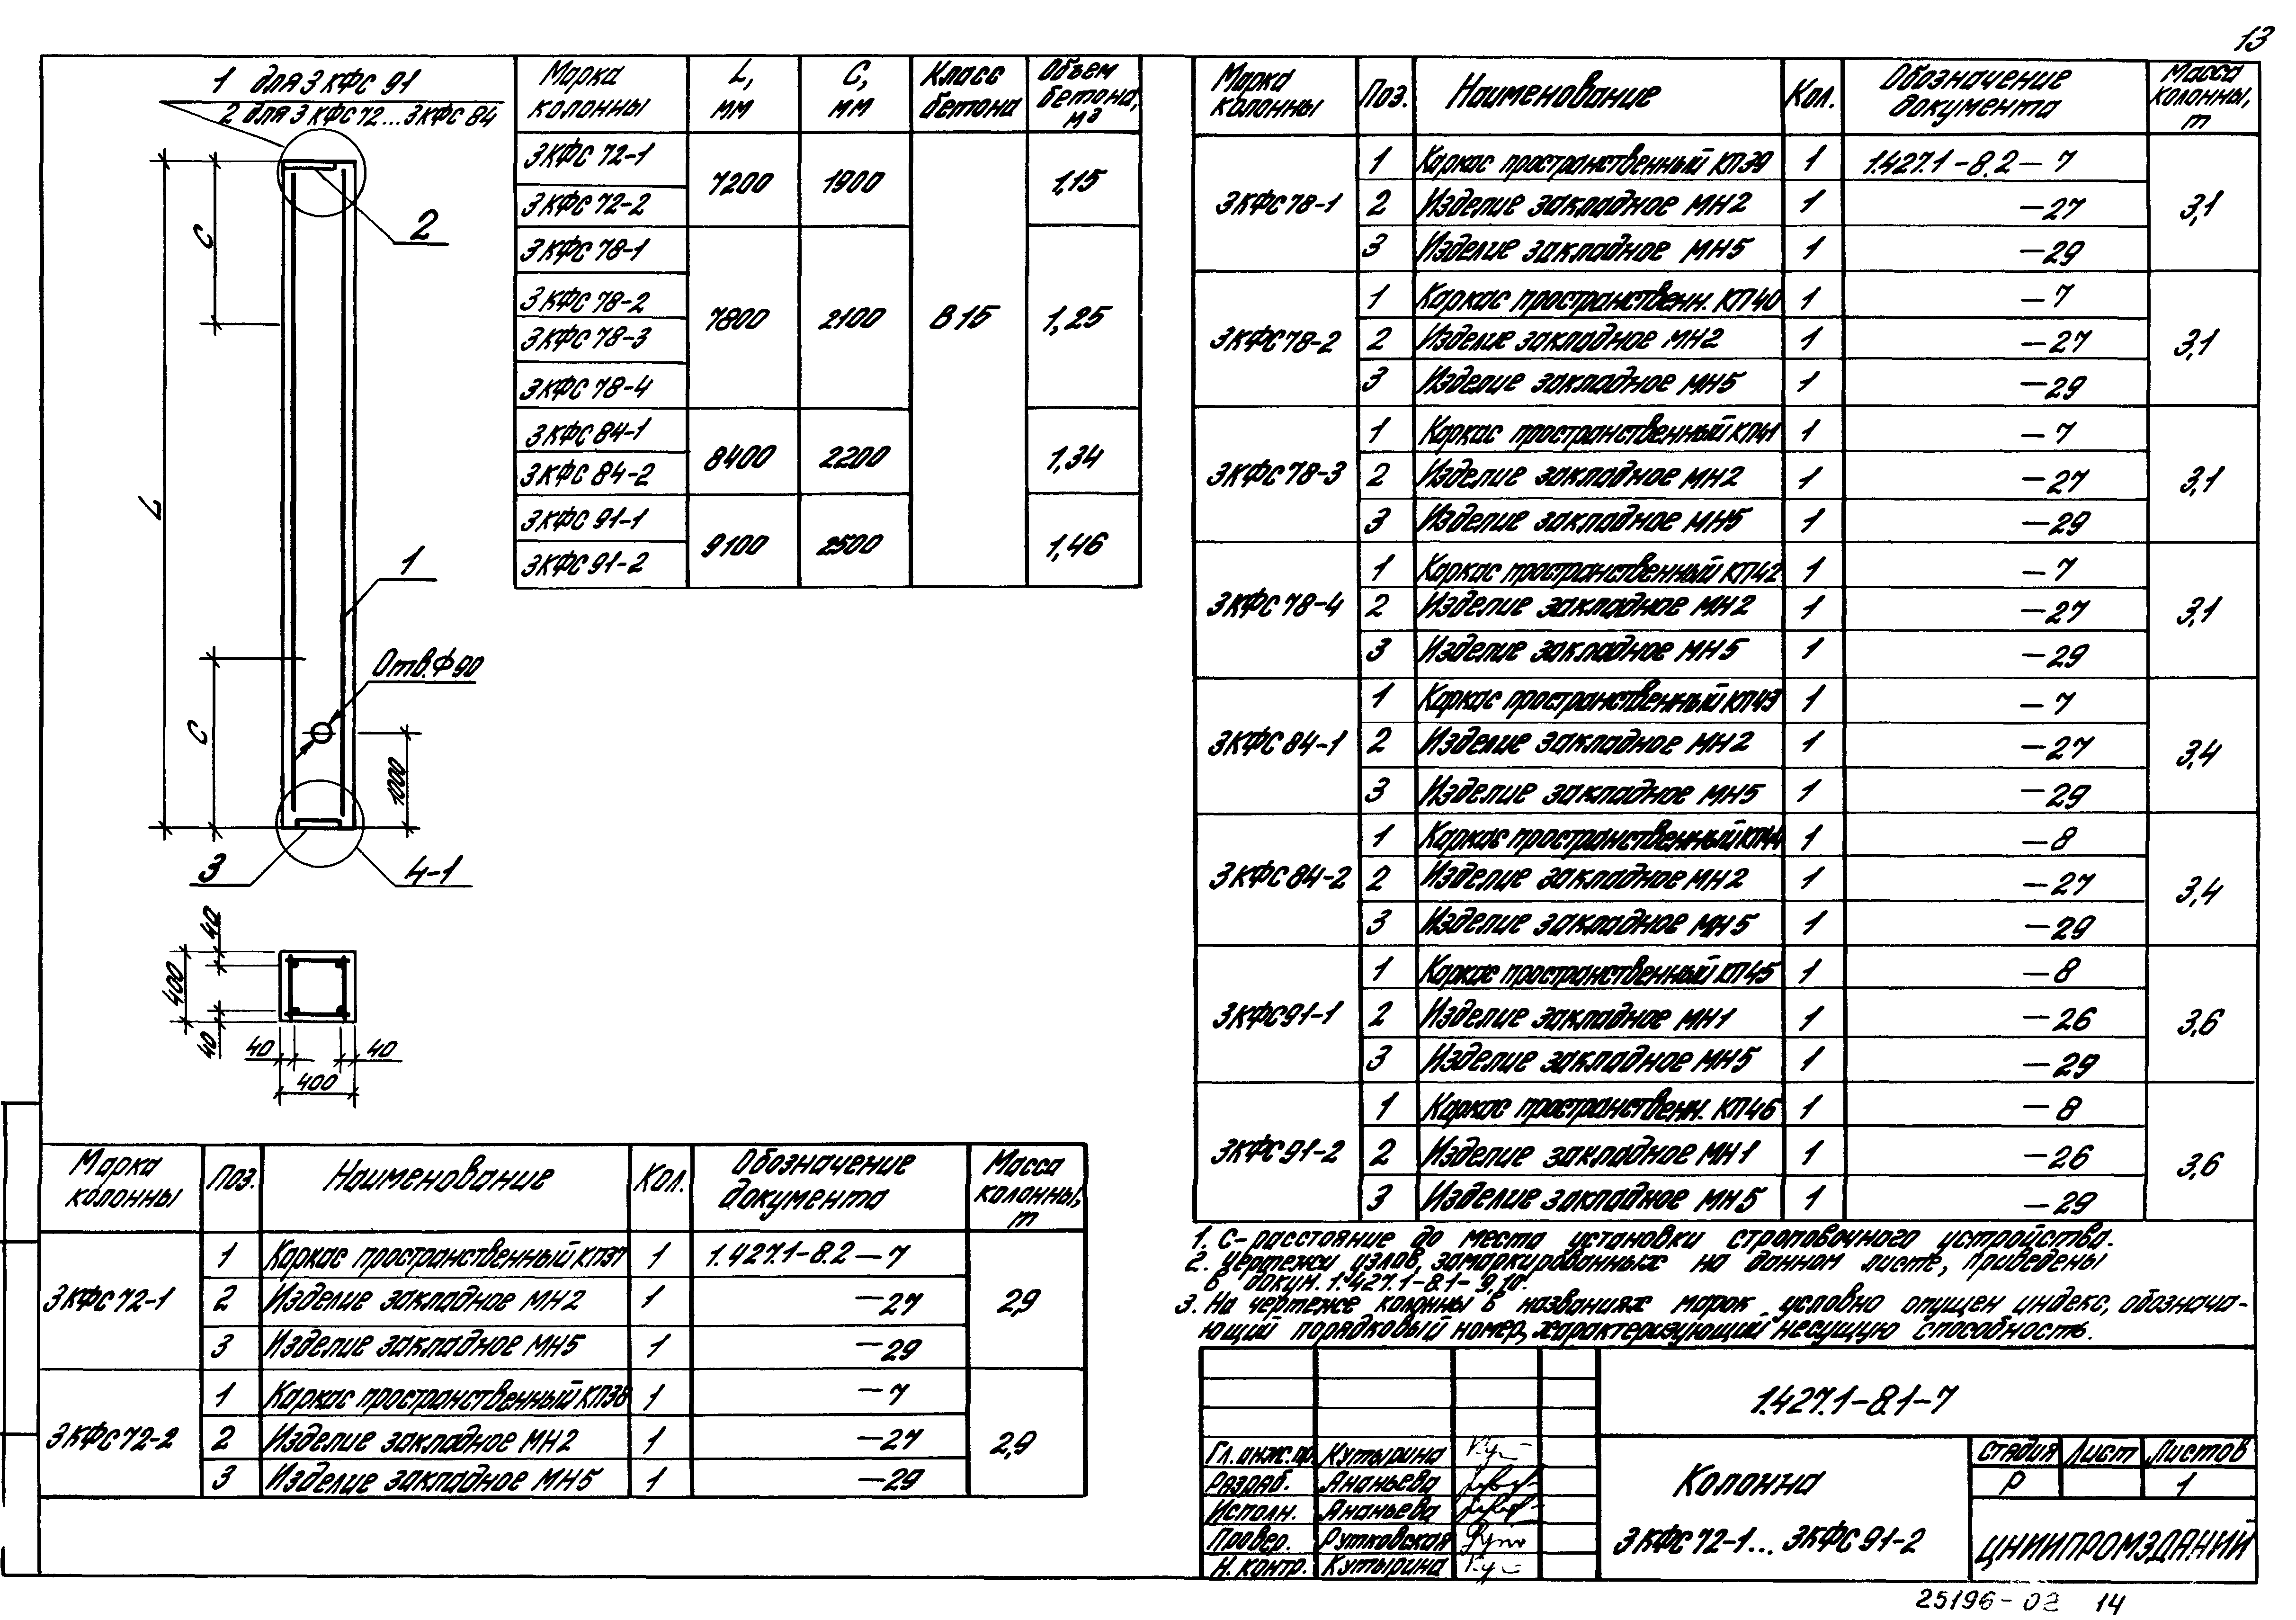 13
1 для 3КФС 91
2 для 3КФС 72...3КФС 84
2
С
L
1
Отв. Ф 90
С
1000
3
4-1
40
400
40
40
40
400
Марка колонны | L, мм | С, мм | Класс бетона | Объем бетона, м³
3КФС 72-1 | 7200 | 1900 | В 15 | 1,15
3КФС 72-2
3КФС 78-1 | 7800 | 2100 | 1,25
3КФС 78-2
3КФС 78-3
3КФС 78-4
3КФС 84-1 | 8400 | 2200 | 1,34
3КФС 84-2
3КФС 91-1 | 9100 | 2500 | 1,46
3КФС 91-2
Марка колонны | Поз. | Наименование | Кол. | Обозначение документа | Масса колонны, т
3КФС 72-1 | 1 | Каркас пространственный КП37 | 1 | 1.427.1-8.2-7 | 2,9
2 | Изделие закладное МН2 | 1 | -27
3 | Изделие закладное МН5 | 1 | -29
3КФС 72-2 | 1 | Каркас пространственный КП38 | 1 | -7 | 2,9
2 | Изделие закладное МН2 | 1 | -27
3 | Изделие закладное МН5 | 1 | -29
Марка колонны | Поз. | Наименование | Кол. | Обозначение документа | Масса колонны, т
3КФС 78-1 | 1 | Каркас пространственный КП39 | 1 | 1.427.1-8.2-7 | 3,1
2 | Изделие закладное МН2 | 1 | -27
3 | Изделие закладное МН5 | 1 | -29
3КФС 78-2 | 1 | Каркас пространственн. КП40 | 1 | -7 | 3,1
2 | Изделие закладное МН2 | 1 | -27
3 | Изделие закладное МН5 | 1 | -29
3КФС 78-3 | 1 | Каркас пространственный КП41 | 1 | -7 | 3,1
2 | Изделие закладное МН2 | 1 | -27
3 | Изделие закладное МН5 | 1 | -29
3КФС 78-4 | 1 | Каркас пространственный КП42 | 1 | -7 | 3,1
2 | Изделие закладное МН2 | 1 | -27
3 | Изделие закладное МН5 | 1 | -29
3КФС 84-1 | 1 | Каркас пространственный КП43 | 1 | -7 | 3,4
2 | Изделие закладное МН2 | 1 | -27
3 | Изделие закладное МН5 | 1 | -29
3КФС 84-2 | 1 | Каркас пространственный КП44 | 1 | -8 | 3,4
2 | Изделие закладное МН2 | 1 | -27
3 | Изделие закладное МН5 | 1 | -29
3КФС 91-1 | 1 | Каркас пространственный КП45 | 1 | -8 | 3,6
2 | Изделие закладное МН1 | 1 | -26
3 | Изделие закладное МН5 | 1 | -29
3КФС 91-2 | 1 | Каркас пространственн. КП46 | 1 | -8 | 3,6
2 | Изделие закладное МН1 | 1 | -26
3 | Изделие закладное МН5 | 1 | -29
1. С-расстояние до места установки строповочного устройства.
2. Чертежи узлов, замаркированных на данном листе, приведены
в докум. 1.427.1-8.1-9,10.
3. На чертеже колонны в названиях марок условно опущен индекс, обознача-
ющий порядковый номер, характеризующий несущую способность.
1.427.1-8.1-7
Гл. инж. пр. Кутырина
Разраб. Ананьева
Исполн. Ананьева
Провер. Рутковская
Н. контр. Кутырина
Колонна
3КФС 72-1... 3КФС 91-2
Стадия | Лист | Листов
Р | 1
ЦНИИПРОМЗДАНИЙ
25196-02 14